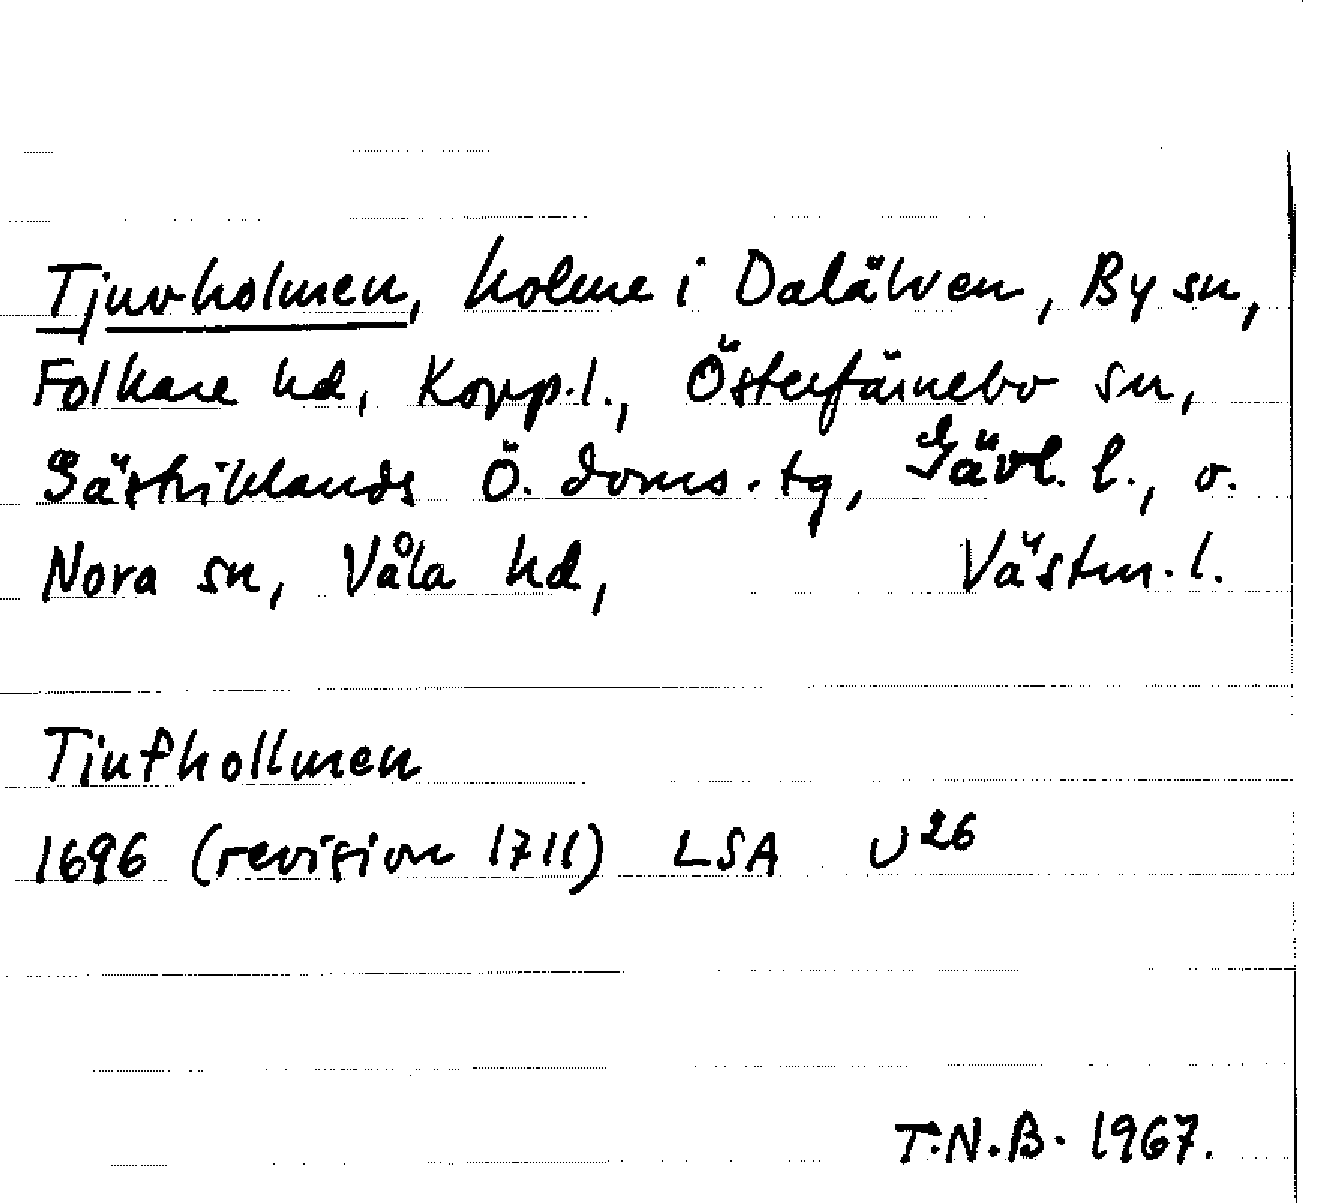 Tjuvholmen, holme i Dalälven, By sn,
Folkare hd, Kopp.l., Österfärnebo sn,
Gästriklands Ö. doms.tg, Gävl. l., o.
Nora sn, Våla hd, Västm.l.
Tjufhollmen
1696 (revision 1711) LSA U26
T.N.B. 1967.